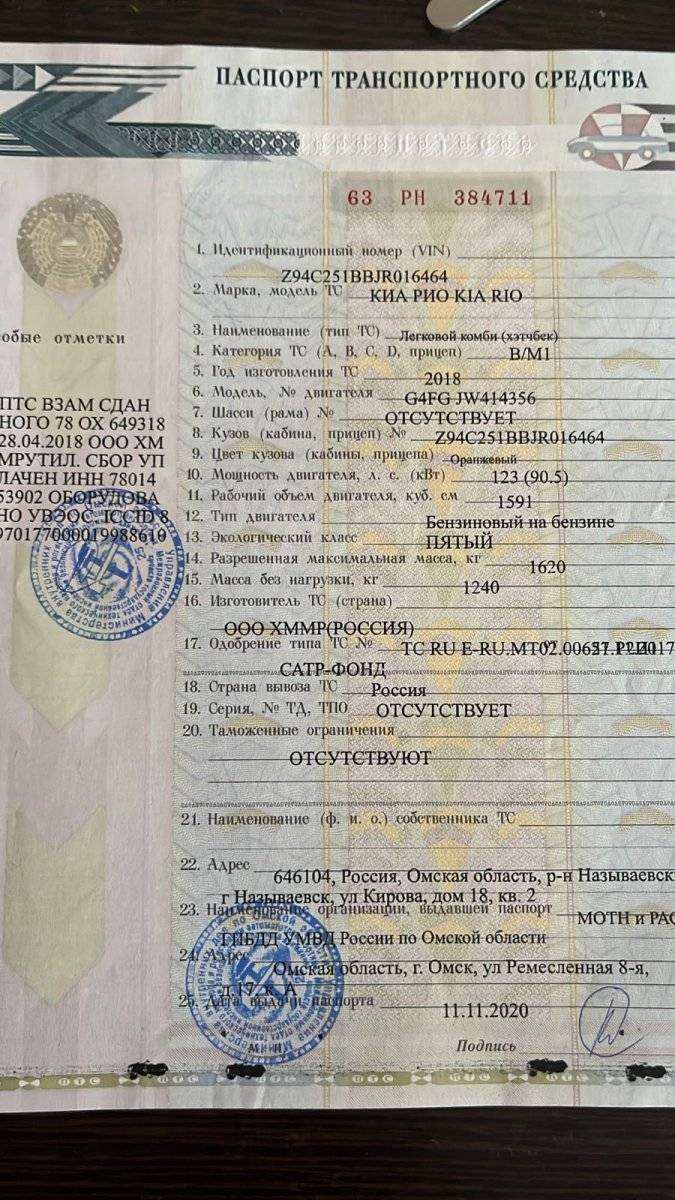 ПАСПОРТ ТРАНСПОРТНОГО СРЕДСТВА
63 РН 384711
1. Идентификационный номер (VIN)
Z94C251BBJR016464
2. Марка, модель ТС КИА РИО KIA RIO
3. Наименование (тип ТС) Легковой комби (хэтчбек)
4. Категория ТС (А, В, С, D, прицеп) B/M1
5. Год изготовления ТС 2018
6. Модель, № двигателя G4FG JW414356
7. Шасси (рама) № ОТСУТСТВУЕТ
8. Кузов (кабина, прицеп) № Z94C251BBJR016464
9. Цвет кузова (кабины, прицепа) Оранжевый
10. Мощность двигателя, л. с. (кВт) 123 (90.5)
11. Рабочий объем двигателя, куб. см 1591
12. Тип двигателя Бензиновый на бензине
13. Экологический класс ПЯТЫЙ
14. Разрешенная максимальная масса, кг 1620
15. Масса без нагрузки, кг 1240
16. Изготовитель ТС (страна)
ООО ХММР(РОССИЯ)
17. Одобрение типа ТС № ТС RU E-RU.MT02.
САТР-ФОНД
18. Страна вывоза ТС Россия
19. Серия, № ТД, ТПО ОТСУТСТВУЕТ
20. Таможенные ограничения
ОТСУТСТВУЮТ
21. Наименование (ф. и. о.) собственника ТС
22. Адрес 646104, Россия, Омская область, р-н Называевск
г Называевск, ул Кирова, дом 18, кв. 2
23. Наименование организации, выдавшей паспорт МОТН и РАС
ГИБДД УМВД России по Омской области
24. Адрес Омская область, г. Омск, ул Ремесленная 8-я,
д.17, к. А
25. Дата выдачи паспорта 11.11.2020
Подпись
М. П.
обые отметки
ПТС ВЗАМ СДАН
НОГО 78 ОХ 649318
28.04.2018 ООО ХМ
МРУТИЛ. СБОР УП
ЛАЧЕН ИНН 78014
53902 ОБОРУДОВА
НО УВЭОС. ICCID 8
9701770000019988610
ПТС ПТС ПТС ПТС